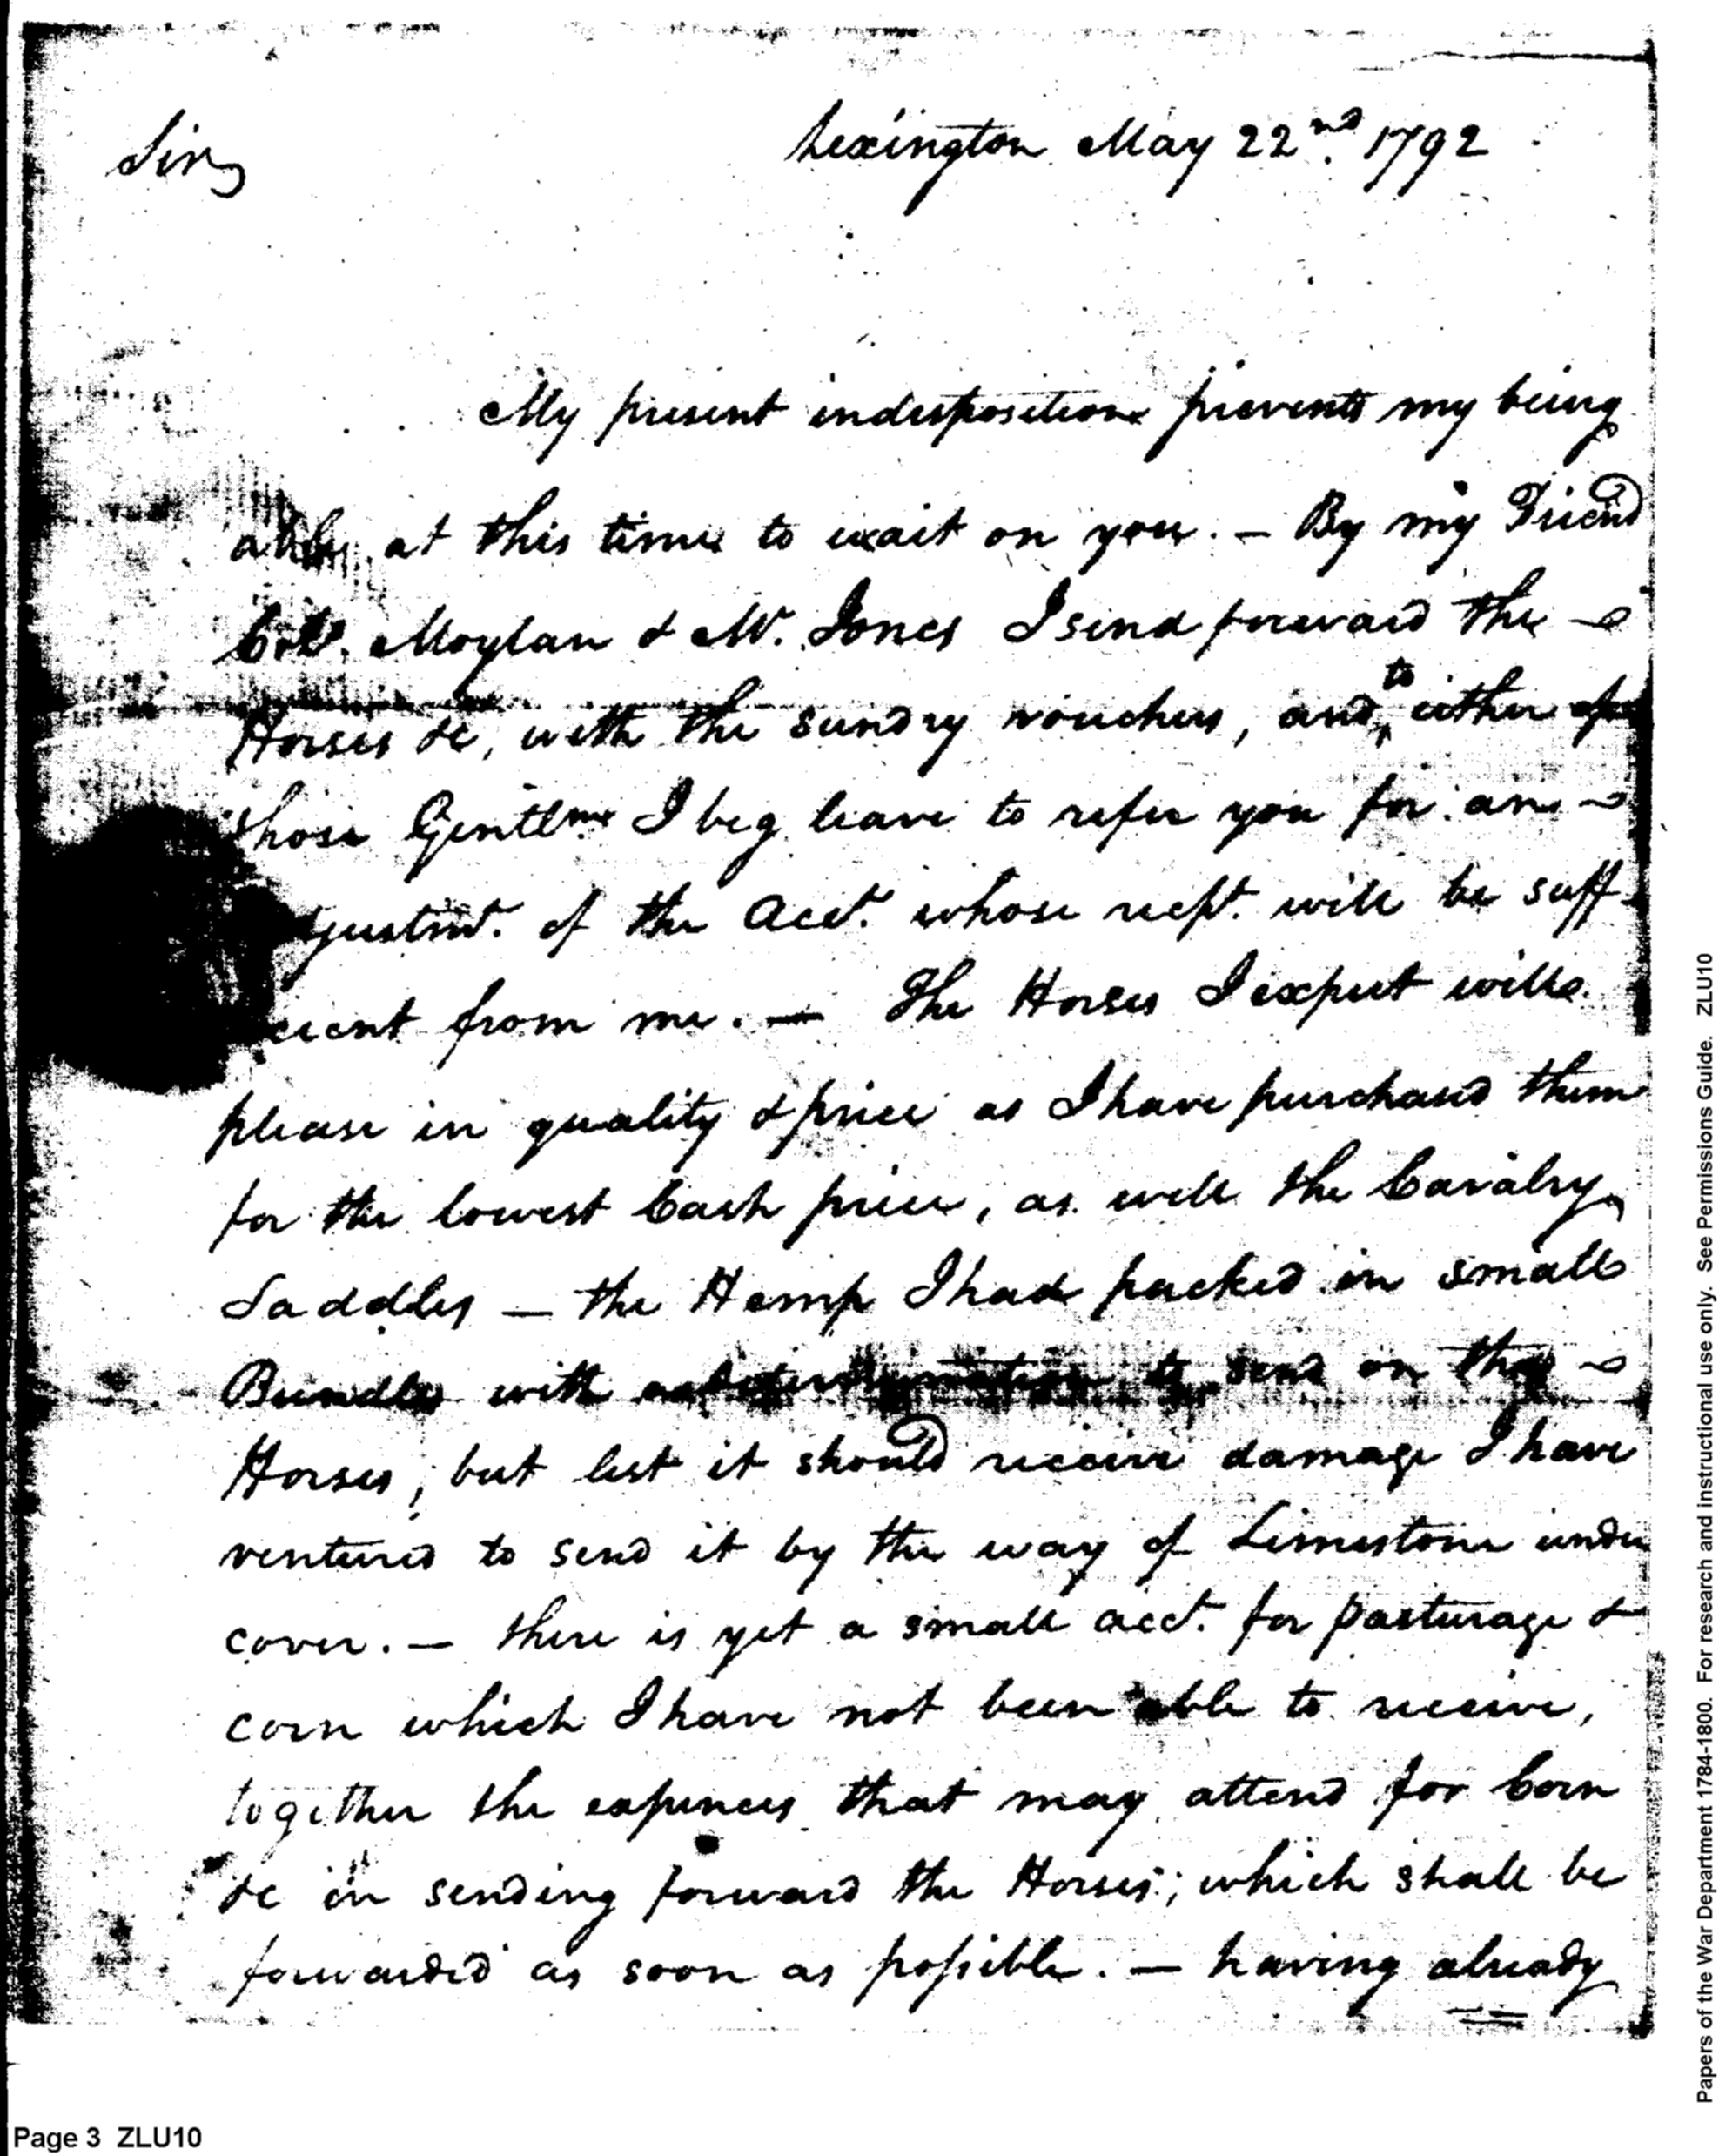 Lexington May 22nd. 1792
Sir,
My present indisposition prevents my being
able at this time to wait on you. – By my Friend
Colo. Moylan & Mr. Jones I send forward the
Horses &c, with the sundry vouchers, and to either of
those Gentlmn I beg leave to refer you for an
justmt. of the Acct. whose rect. will be suff
cient from me. – The Horses I expect will
please in quality & price as I have purchased them
for the lowest Cash price, as well the Cavalry
Saddles – the Hemp I had packed in small
Bundles with a determination to send on the
Horses, but lest it should receive damage I have
ventured to send it by the way of Limestone under
cover. – there is yet a small acct. for pasturage &
corn which I have not been able to receive,
together the expences that may attend for Corn
&c in sending forward the Horses; which shall be
forwarded as soon as possible. – having already
Papers of the War Department 1784-1800. For research and instructional use only. See Permissions Guide. ZLU10
Page 3 ZLU10